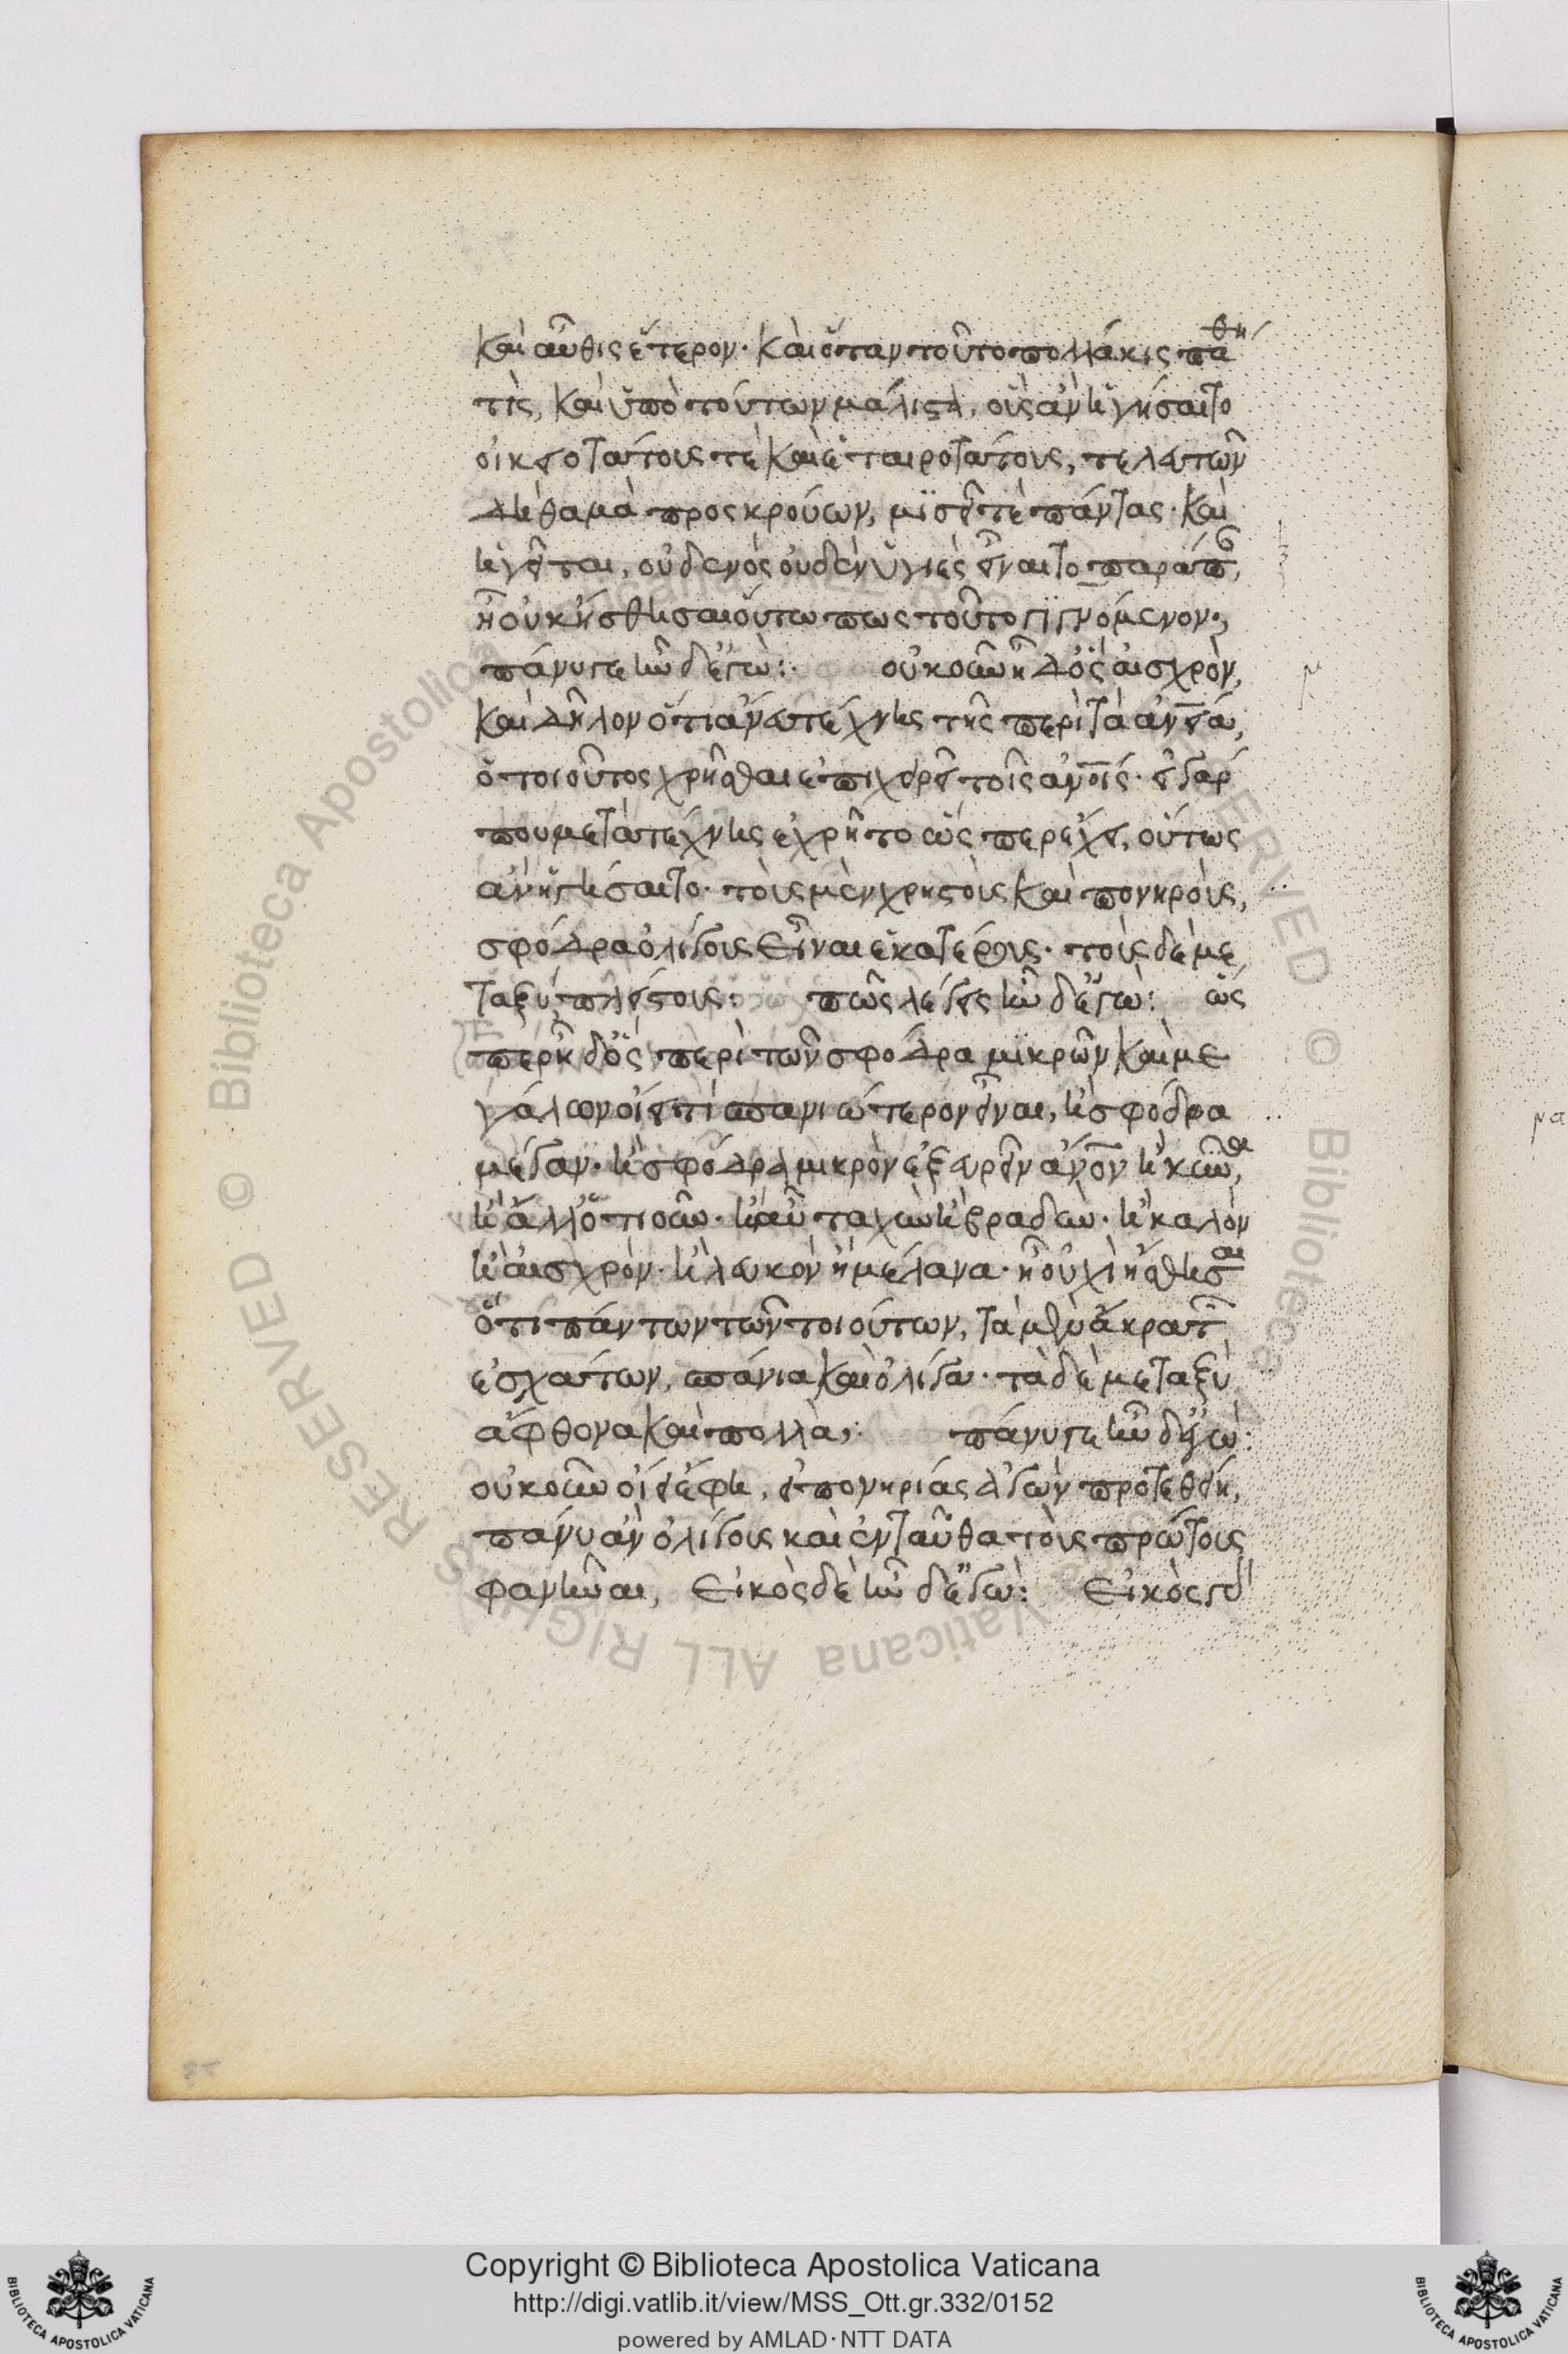 καὶ αὖθις ἕτερον· καὶ ὅταν τοῦτο πολλάκις πάθη
τίς, καὶ ὑπὸ τούτων μάλιστα, οὓς ἂν ἡγήσαιτο
οἰκειοτάτους τὲ καὶ ἑταιροτάτους, τελευτῶν
δὴ θαμὰ προσκρούων, μισεῖ τὲ πάντας· καὶ
ἡγεῖται, οὐδενὸς οὐδὲν ὑγιὲς εἶναι τὸ παράπαν,
ἢ οὐκ ᾔσθησαι οὕτω πως τοῦτο γιγνόμενον;
πάνυ γε ἦν δ' ἐγώ: οὐκοῦν ἦ δ' ὃς αἰσχρὸν,
καὶ δῆλον ὅτι ἄνευ τέχνης τῆς περὶ τὰ ἀνεια,
ὁ τοιοῦτος χρῆσθαι ἐπιχειρεῖ τοῖς ἀνοις· εἰ γάρ
που μετὰ τέχνης ἐχρῆτο ὥσπερ ἔχει, οὕτως
ἂν ἡγήσαιτο· τοὺς μὲν χρηστοὺς καὶ πονηροὺς,
σφόδρα ὀλίγους εἶναι ἑκατέρους· τοὺς δὲ με
ταξὺ πλείστους: πῶς λέγεις ἦν δ' ἐγώ: ὥς
περ ἦ δ' ὃς περὶ τῶν σφόδρα μικρῶν καὶ με
γάλων οἴει τι σπανιώτερον εἶναι, ἢ σφόδρα
μέγαν· ἢ σφόδρα μικρὸν ἐξευρεῖν ἀνον ἢ κύνα,
ἢ ἄλλο ὁτιοῦν· ἢ αὖ ταχὺν ἢ βραδὺν· ἢ καλὸν
ἢ αἰσχρὸν· ἢ λευκὸν ἢ μέλανα· ἢ οὐχὶ ᾔσθησαι
ὅτι πάντων τῶν τοιούτων, τὰ μὲν ἄκρα τῶν
ἐσχάτων, σπάνια καὶ ὀλίγα· τὰ δὲ μεταξὺ
ἄφθονα καὶ πολλὰ; πάνυ γε ἦν δ' ἐγώ:
οὐκοῦν οἴει ἔφη, εἰ πονηρίας ἀγὼν προτεθείη,
πάνυ ἂν ὀλίγους καὶ ἐνταῦθα τοὺς πρώτους
φανῆναι, εἰκὸς δὲ ἦν δ' ἐγώ: εἰκὸς γὰρ
Copyright © Biblioteca Apostolica Vaticana
http://digi.vatlib.it/view/MSS_Ott.gr.332/0152
powered by AMLAD·NTT DATA